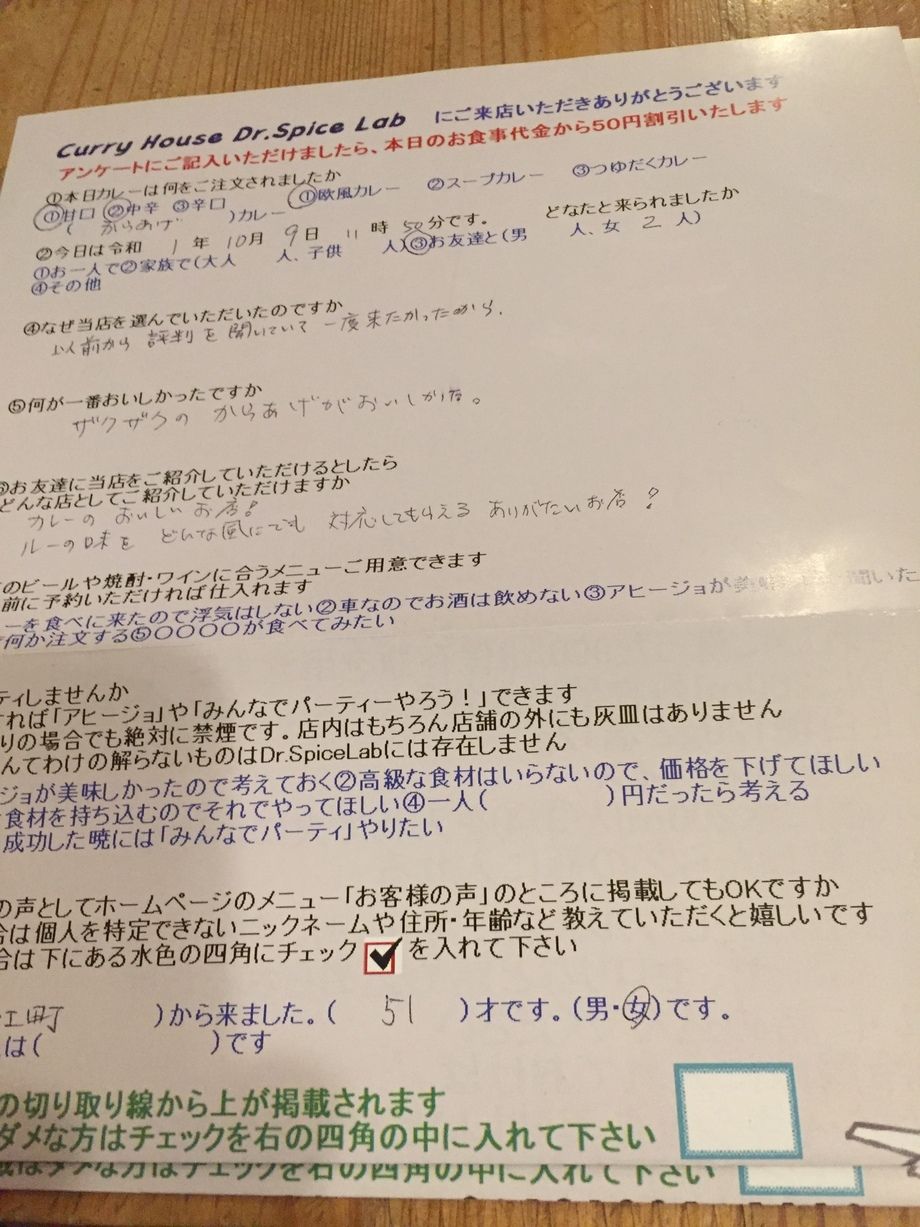 Curry House Dr.Spice Lab にご来店いただきありがとうございます
アンケートにご記入いただけましたら、本日のお食事代金から50円割引いたします
①本日カレーは何をご注文されましたか ①欧風カレー ②スープカレー ③つゆだくカレー
①甘口 ②中辛 ③辛口
( からあげ )カレー
②今日は令和 1 年 10月 9日 11時50分です。 どなたと来られましたか
①お一人で②家族で(大人 人、子供 人)③お友達と(男 人、女 2 人)
④その他
④なぜ当店を選んでいただいたのですか
以前から 評判を聞いていて 一度来たかったから。
⑤何が一番おいしかったですか
ザクザクの からあげがおいしかった。
⑥お友達に当店をご紹介していただけるとしたら
どんな店としてご紹介していただけますか
カレーの おいしい お店!
ルーの味を どんな風にでも 対応してもらえる ありがたいお店!
のビールや焼酎・ワインに合うメニューご用意できます
前に予約いただければ仕入れます
ーを食べに来たので浮気はしない②車なのでお酒は飲めない③アヒージョが 聞いた
何か注文する⑤〇〇〇〇が食べてみたい
ティしませんか
れば「アヒージョ」や「みんなでパーティーやろう!」できます
りの場合でも絶対に禁煙です。店内はもちろん店舗の外にも灰皿はありません
んてわけの解らないものはDr.SpiceLabには存在しません
ジョが美味しかったので考えておく②高級な食材はいらないので、価格を下げてほしい
食材を持ち込むのでそれでやってほしい④一人( )円だったら考える
成功した暁には「みんなでパーティ」やりたい
の声としてホームページのメニュー「お客様の声」のところに掲載してもOKですか
合は個人を特定できないニックネームや住所・年齢など教えていただくと嬉しいです
合は下にある水色の四角にチェック を入れて下さい
町 )から来ました。( 51 )才です。(男・女)です。
は( )です
の切り取り線から上が掲載されます
ダメな方はチェックを右の四角の中に入れて下さい
はダメな方はチェックを右の四角の中に入れて下さい